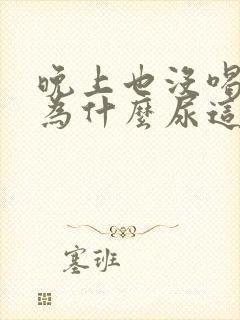 晚上也沒喝
為什麼尿這
塞班